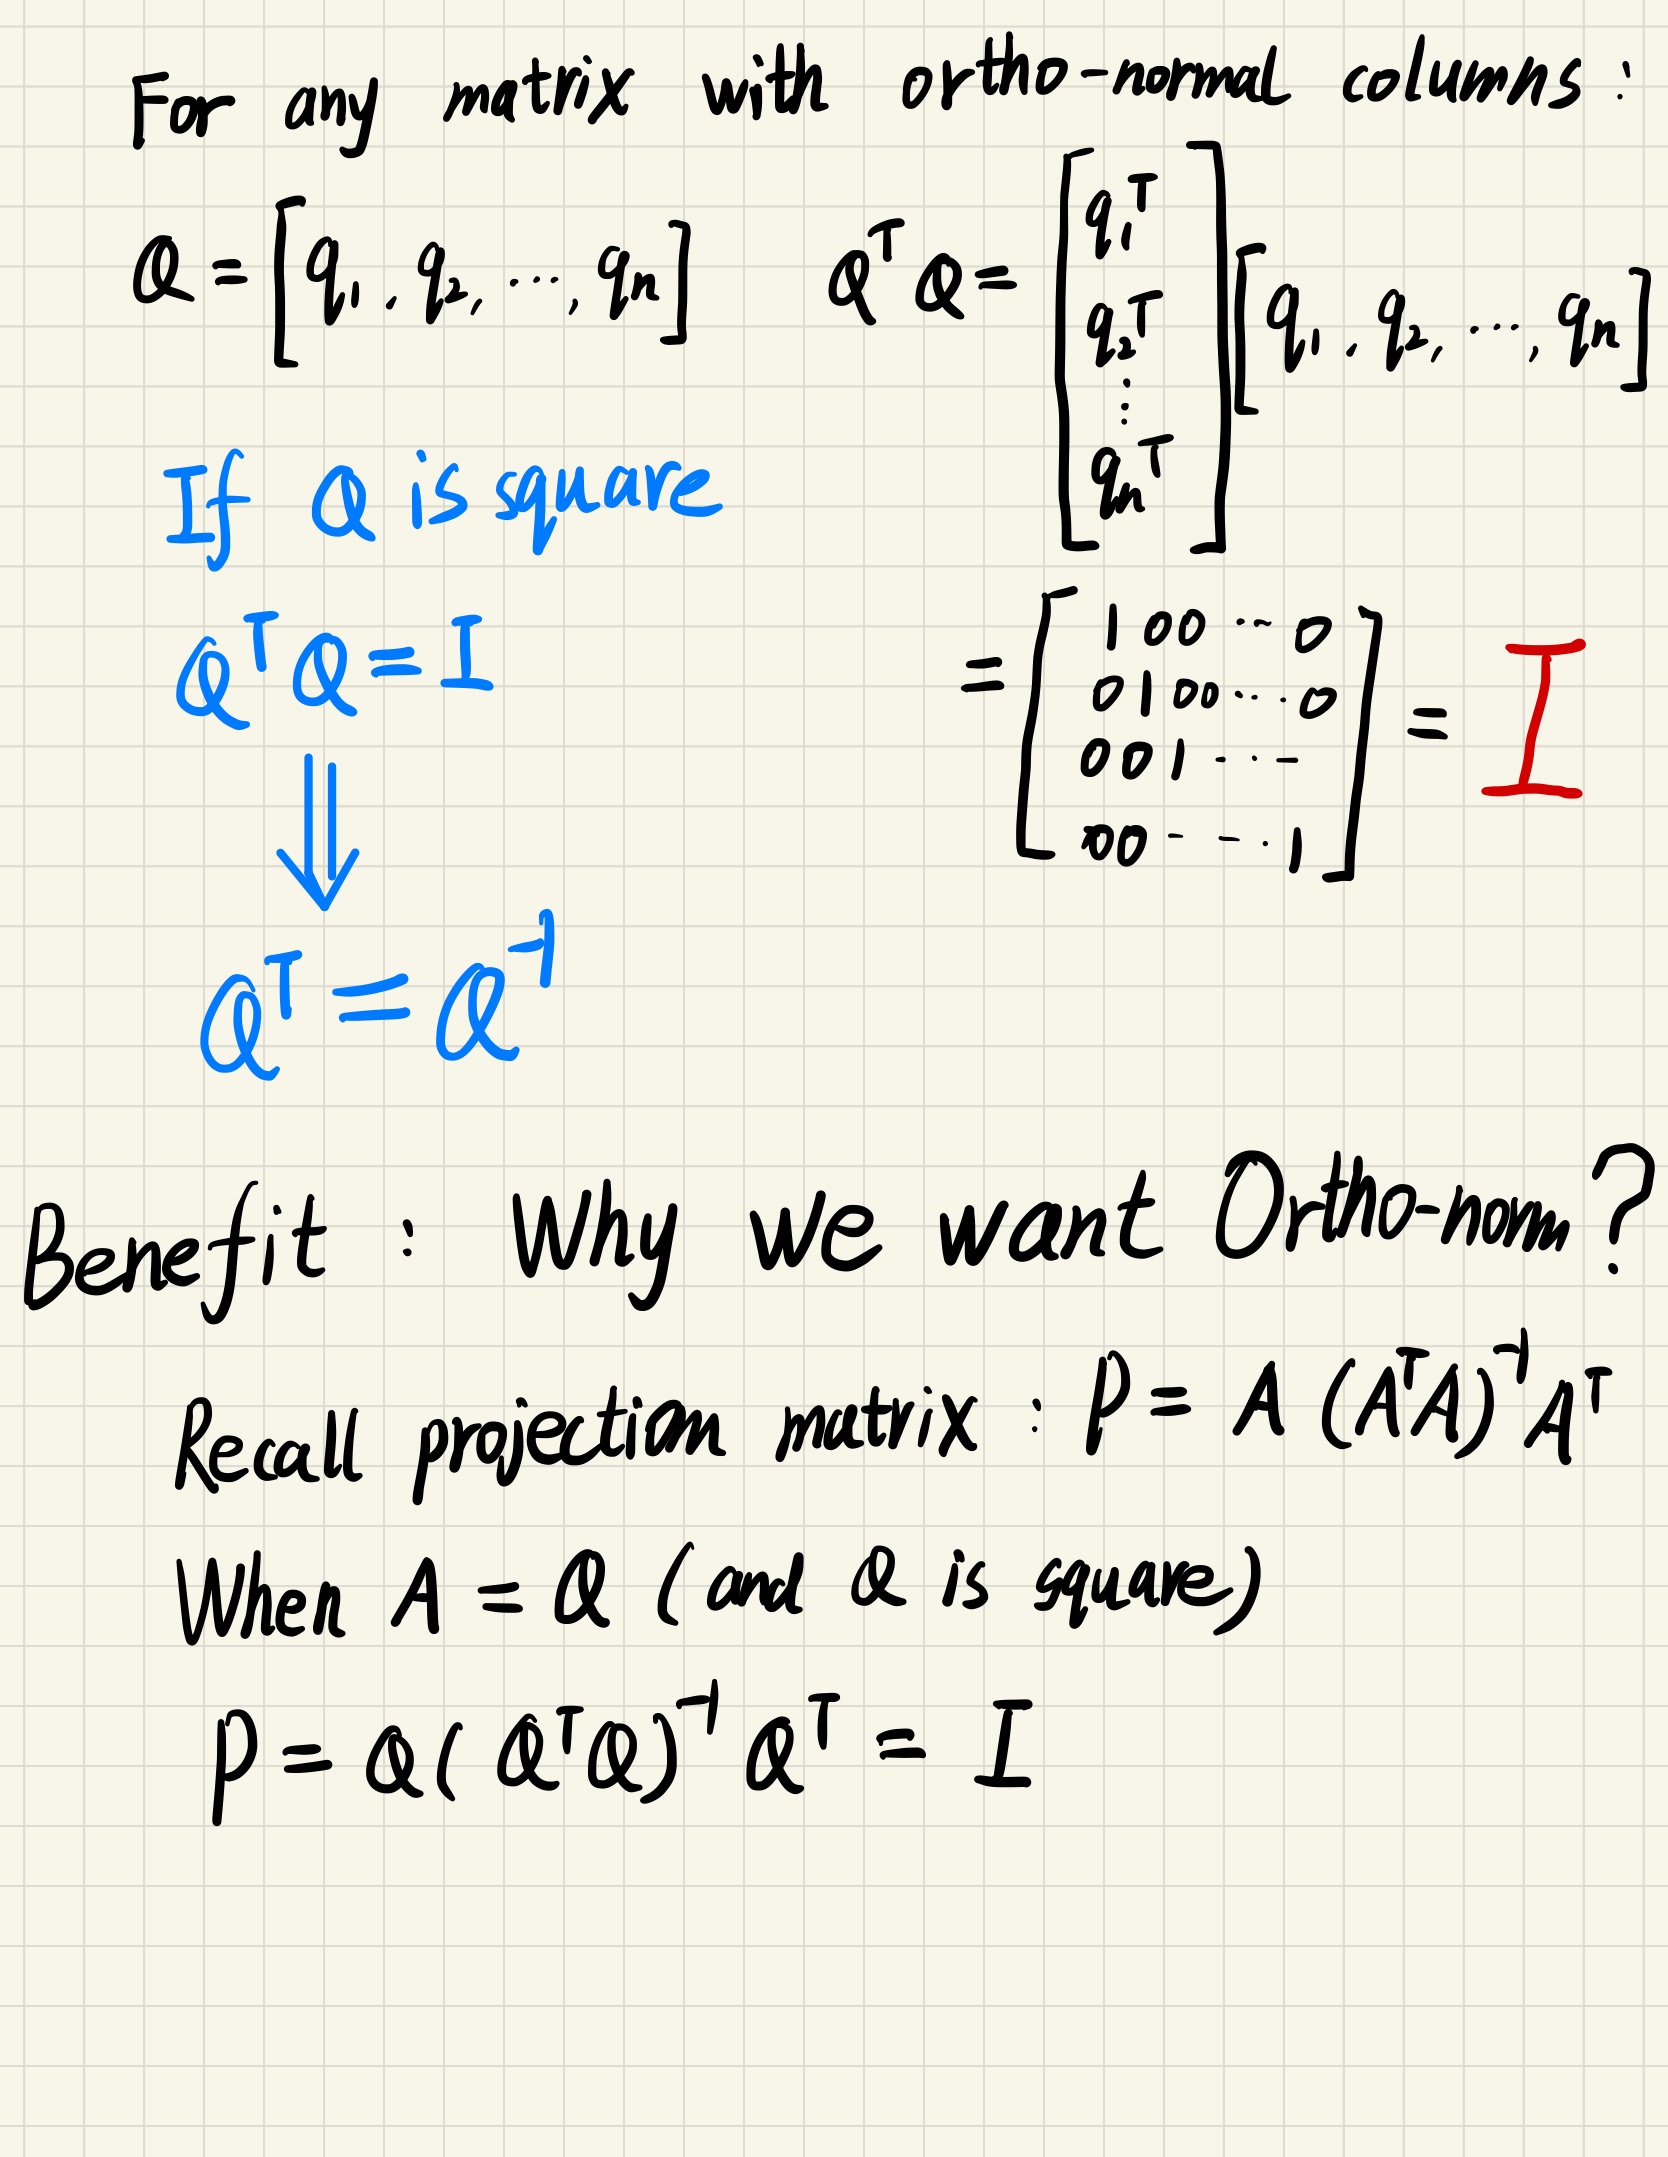 For any matrix with ortho-normal columns :
Q = [q₁, q₂, ⋯, qₙ]
QᵀQ = [q₁ᵀ q₂ᵀ ⋮ qₙᵀ] [q₁, q₂, ⋯, qₙ]
If Q is square
QᵀQ = I
⇓
Qᵀ = Q⁻¹
= [
1 0 0 ⋯ 0
0 1 0 0 ⋯ 0
0 0 1 ⋯
0 0 ⋯ 1
] = I
Benefit : Why we want Ortho-norm ?
Recall projection matrix : P = A (AᵀA)⁻¹ Aᵀ
When A = Q (and Q is square)
P = Q( QᵀQ)⁻¹ Qᵀ = I